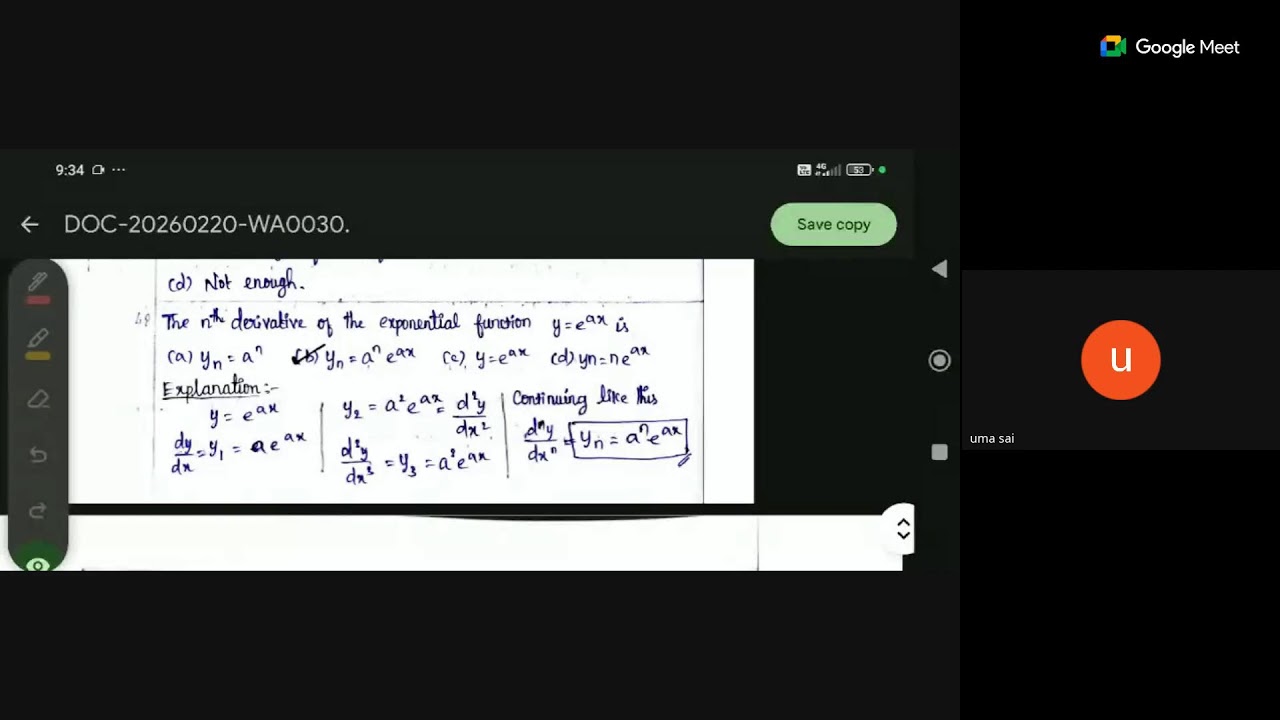 Google Meet
9:34
4G
53
DOC-20260220-WA0030.
Save copy
(d) Not enough.
49 The nth derivative of the exponential function y=e^ax is
(a) yn = a^n (b) yn = a^n e^ax (c) y=e^ax (d) yn=n e^ax
Explanation:-
y = e^ax
dy/dx = y1 = a e^ax
y2 = a^2 e^ax = d^2y/dx^2
d^3y/dx^3 = y3 = a^3 e^ax
Continuing like this
d^ny/dx^n = yn = a^n e^ax
u
uma sai